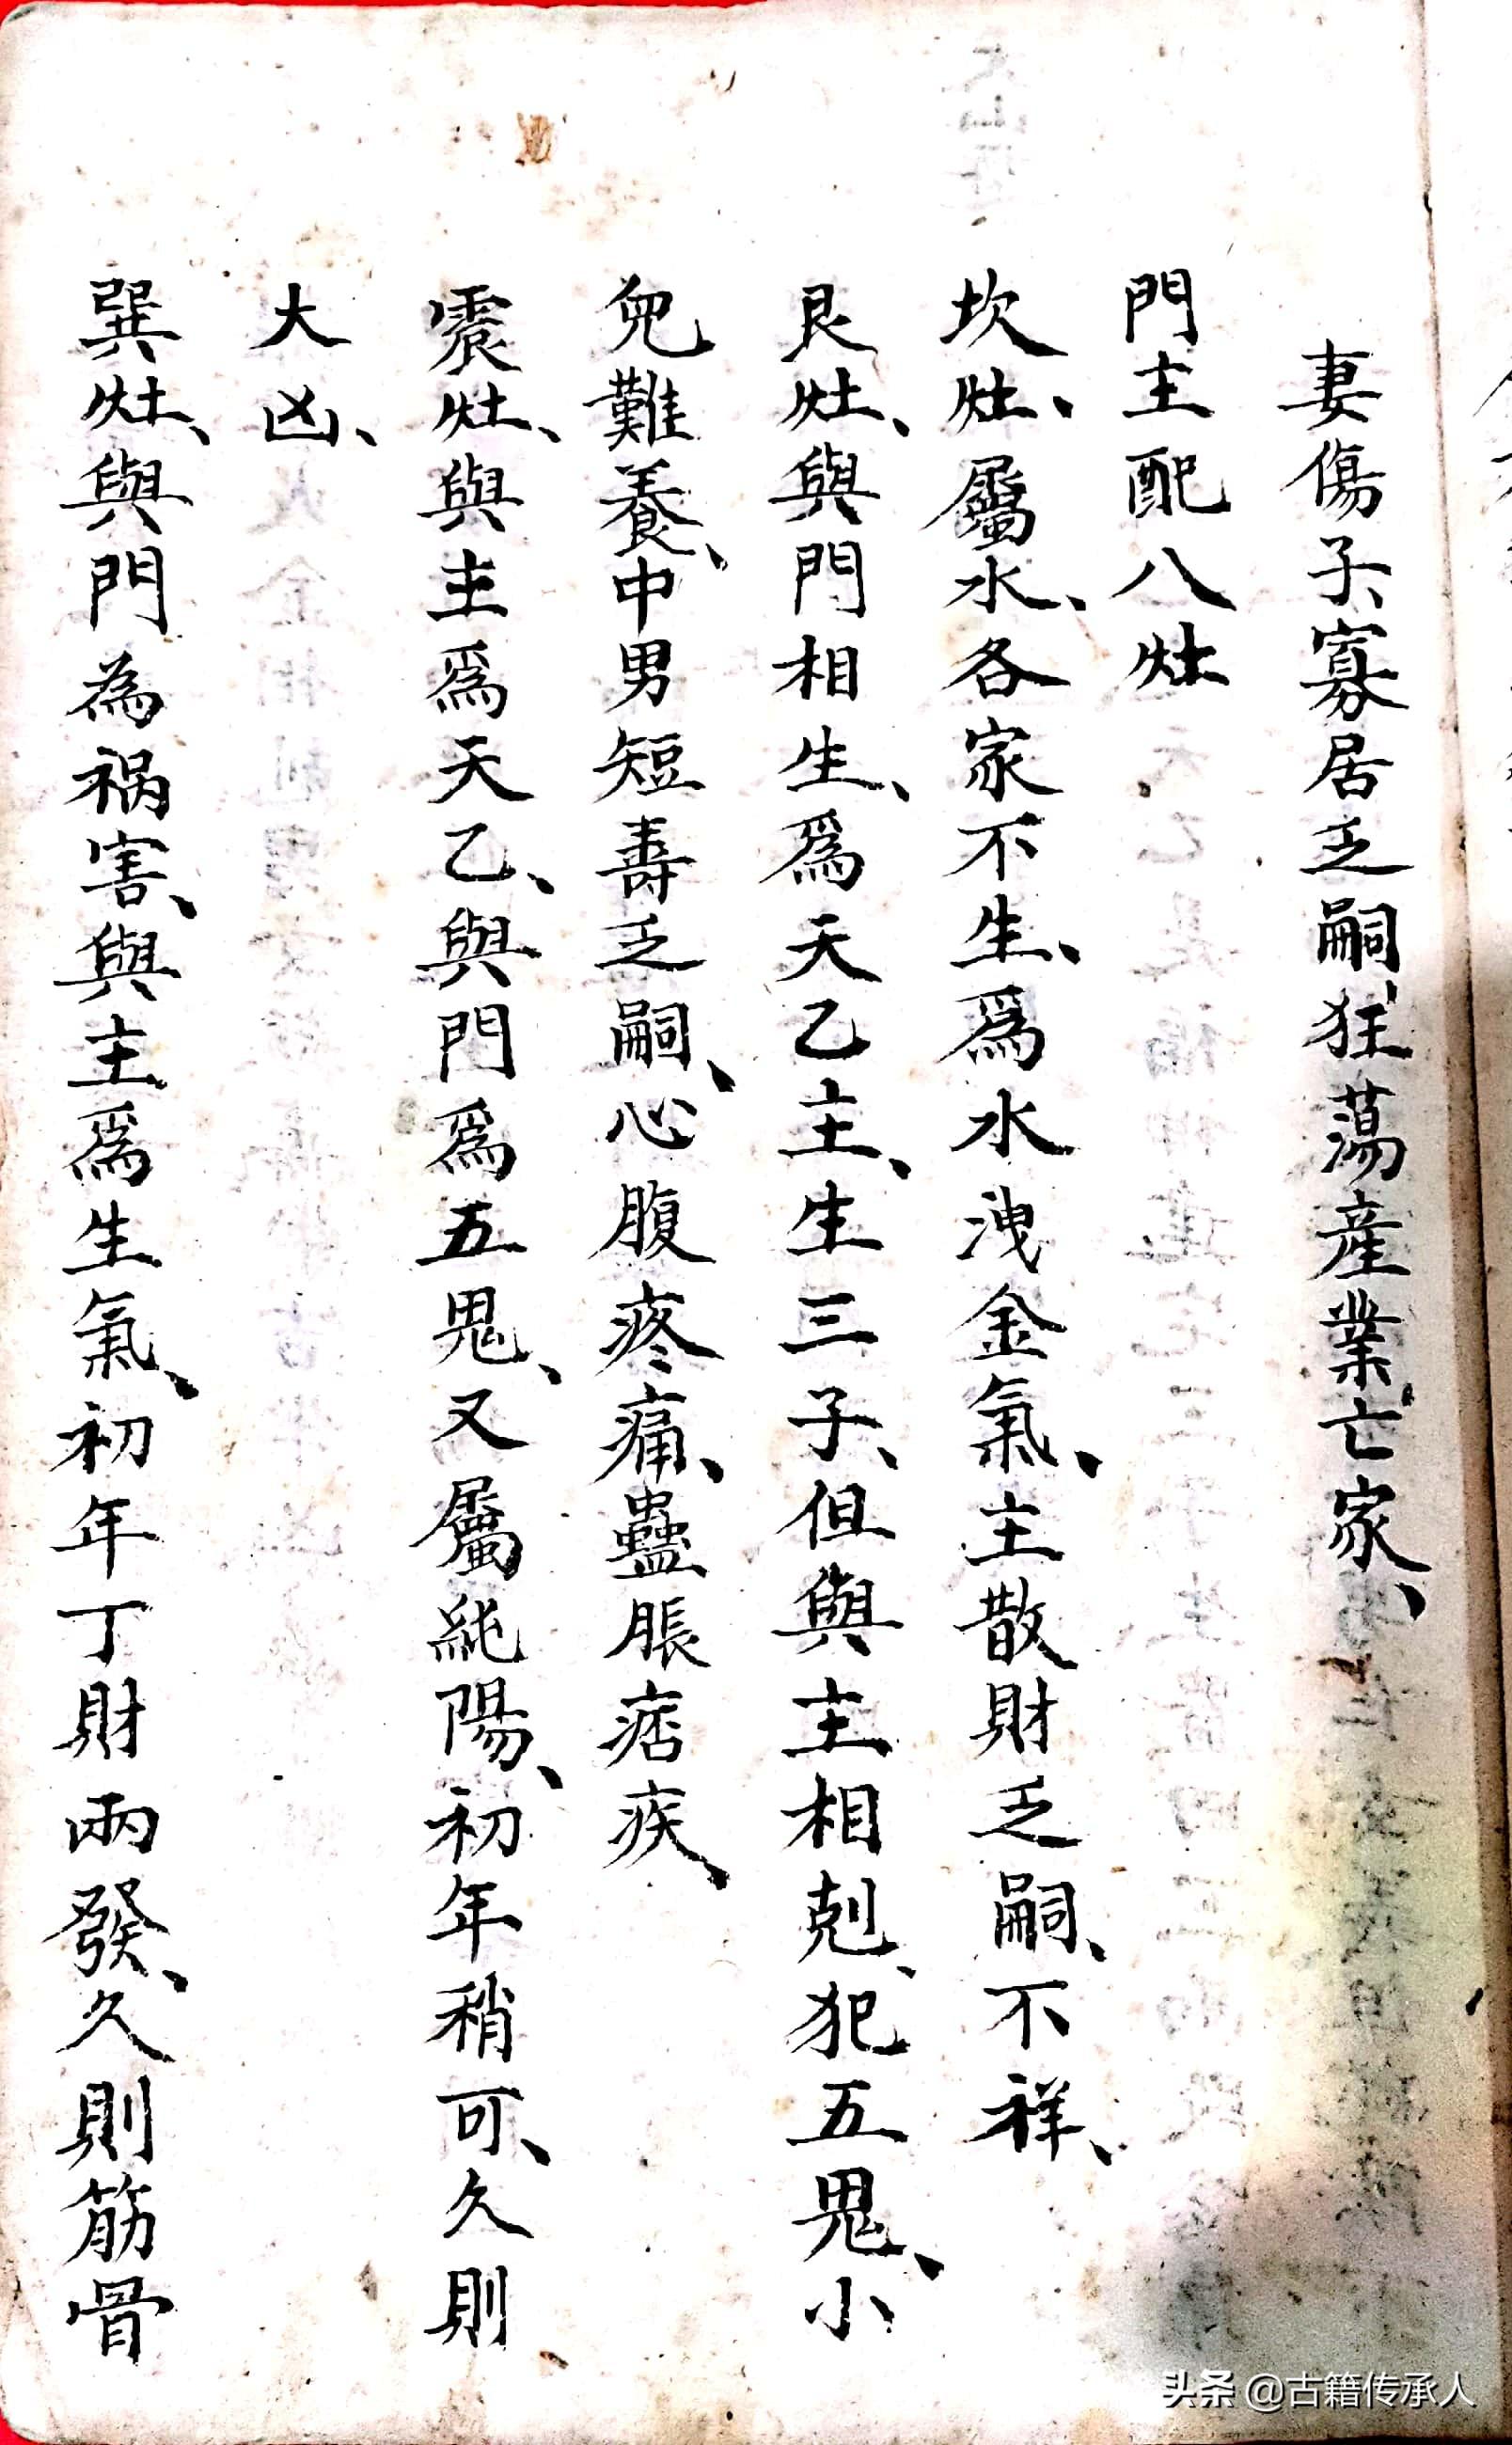 妻傷子、寡居乏嗣、狂蕩產業、亡家、
門主配八灶
坎灶、屬水、各家不生、爲水洩金氣、主散財乏嗣、不祥、
艮灶、與門相生、爲天乙主、生三子、但與主相剋、犯五鬼、小
兒難養、中男短壽乏嗣、心腹疼痛、蠱脹痞疾、
震灶、與主爲天乙、與門爲五鬼、又屬純陽、初年稍可、久則
大凶、
巽灶、與門為禍害、與主爲生氣、初年丁財兩發、久則筋骨
头条 @古籍传承人